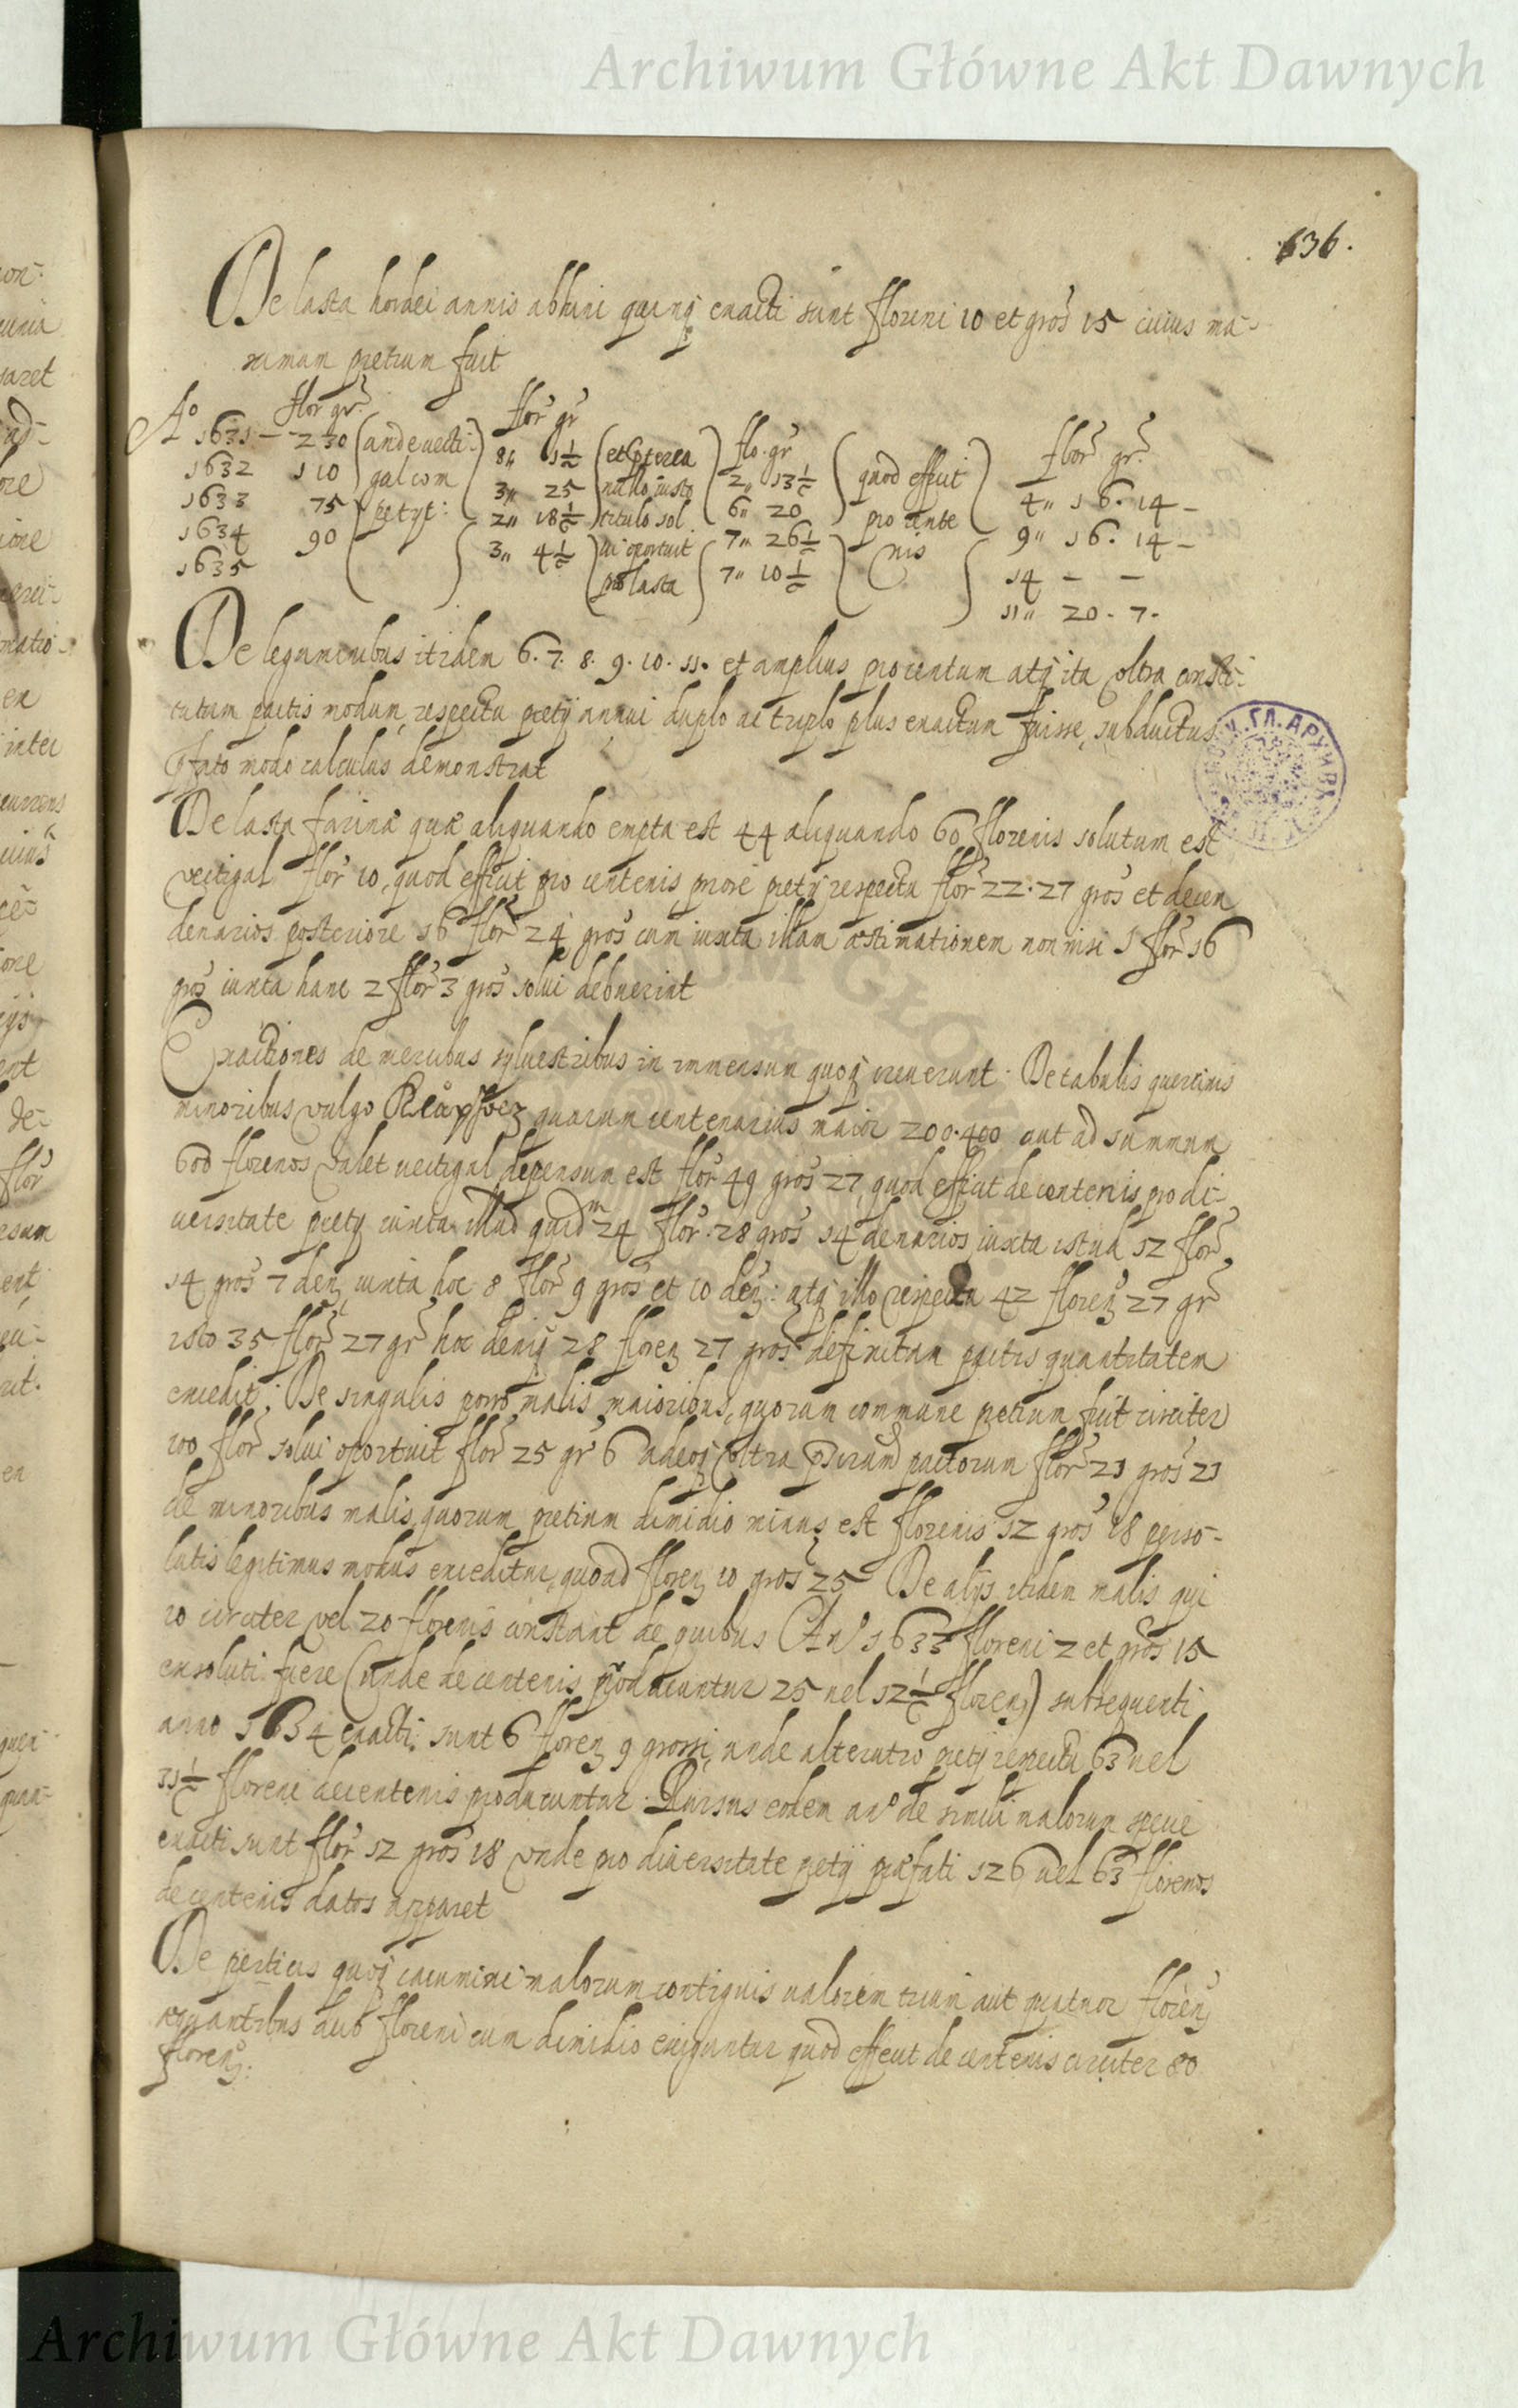 Archiwum Główne Akt Dawnych
636.
De lasta hordei annis abhinc quinq exacti sunt floreni 10 et gros 15 cuius ma-
ximum pretium fuit
Ao flor gr. flor gr flo. gr flor gr.
1631 - 230 (unde vecti: 8 1½ (et pterea 2 13½ quod efficit 4 16. 14 -
1632 110 gal com 3 25 nullo iusto 6 20 pro cente 9 16. 14 -
1633 75 petyt: 2 18½ titulo sol 7 26½ nis 14 - -
1634 90 3 4½ vi oportuit 7 10½ 11 20. 7.
1635 pro lasta
De leguminibus itidem 6. 7. 8. 9. 10. 11. et amplius pro centum atq ita ultra consti-
tutum pactis modum, respectu pretij annui duplo ac triplo plus exactum fuisse, subductus
pfato modo calculus demonstrat
De lasta farinæ quæ aliquando empta est 44 aliquando 60 florenis solutum est
vectigal flor 10, quod efficit pro centenis, priore pretij respectu flor 22. 27 gros et decem
denarios posteriore 16 flor 24 gros cum iuxta illam æstimationem non nisi 1 flor 16
gros iuxta hanc 2 flor 3 gros solui debuerint
Exactiones de mercibus syluestribus in immensum quoq creuerunt. De tabulis quercinis
minoribus vulgo quarum centenarius maior 200. 400 aut ad summum
600 florenos valet vectigal depensum est flor 49 gros 27, quod efficit de centenis pro di-
uersitate pretij iuxta illud quidm 24 flor. 28 gros 14 denarios iuxta istud 12 flor
14 gros 7 den iuxta hoc 8 flor 9 gros et 10 den: atq illo respectu 42 floren 27 gr
isto 35 flor 27 gr hoc deniq 28 floren 27 gros definitam pactis quantitatem
excedit. De singulis porro malis maioribus, quorum commune pretium fuit circiter
100 flor solui oportuit flor 25 gr 6 adeoq ultra pscriptum pactorum flor 21 gros 21
de minoribus malis, quorum pretium dimidio minus est florenis 12 gros 18 perso-
lutis legitimus modus exceditur, quoad floren 10 gros 25 De alijs itidem malis qui
10 circiter vel 20 florenis constant de quibus Ano 1633 floreni 2 et gros 15
exsoluti fuere (unde de centenis producuntur 25 vel 12½ floren) subsequenti
anno 1634 exacti sunt 6 floren 9 grossi, unde alterutro pretij respectu 63 vel
31½ floreni de centenis producuntur. Rursus eodem ano de simili malorum specie
exacti sunt flor 12 gros 18 vnde pro diuersitate pretij præfati 126 vel 63 florenos
de centenis datos apparet
De perticis quoq cacumini malorum contiguis valorem trium aut quatuor floren
æquantibus duo floreni cum dimidio exiguntur quod efficit de centenis circiter 80
floren:
Archiwum Główne Akt Dawnych